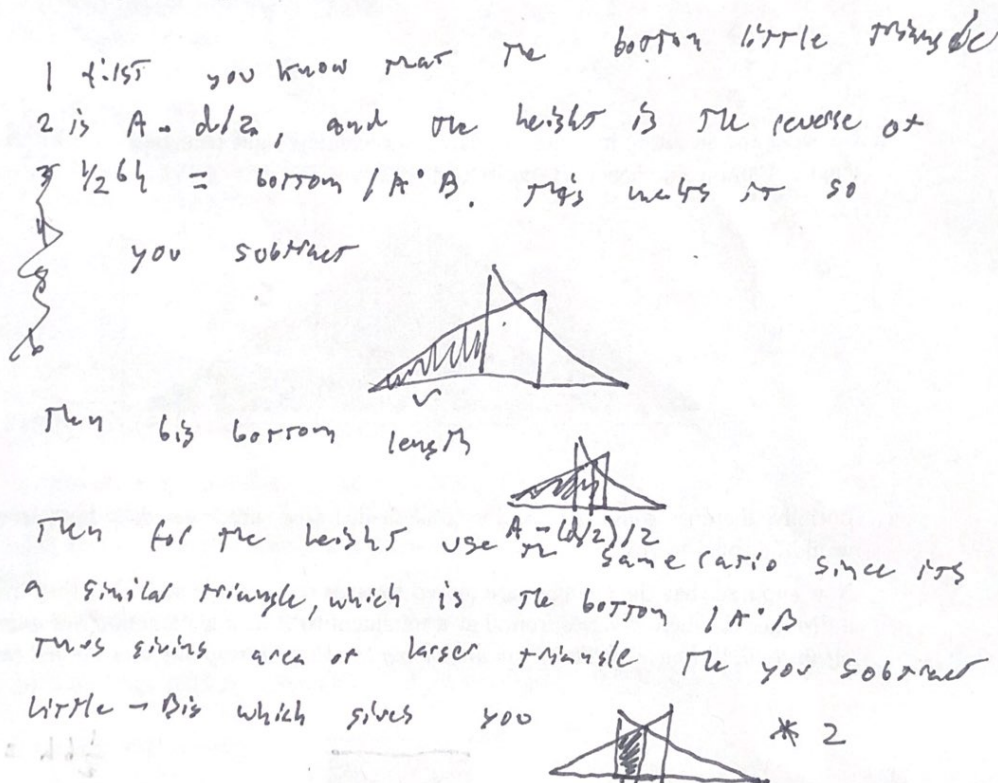 1 first you know that the bottom little triangle
2 is A - d/2, and the height is the reverse of
3 1/2 bh = bottom / A · B. This makes it so
4
you subtract
5
6
Then big bottom length
A - (d/2)/2
Then for the height use the same ratio since its
a similar triangle, which is the bottom / A · B
Thus giving area of larger triangle. The you subtract
little - Big which gives you * 2